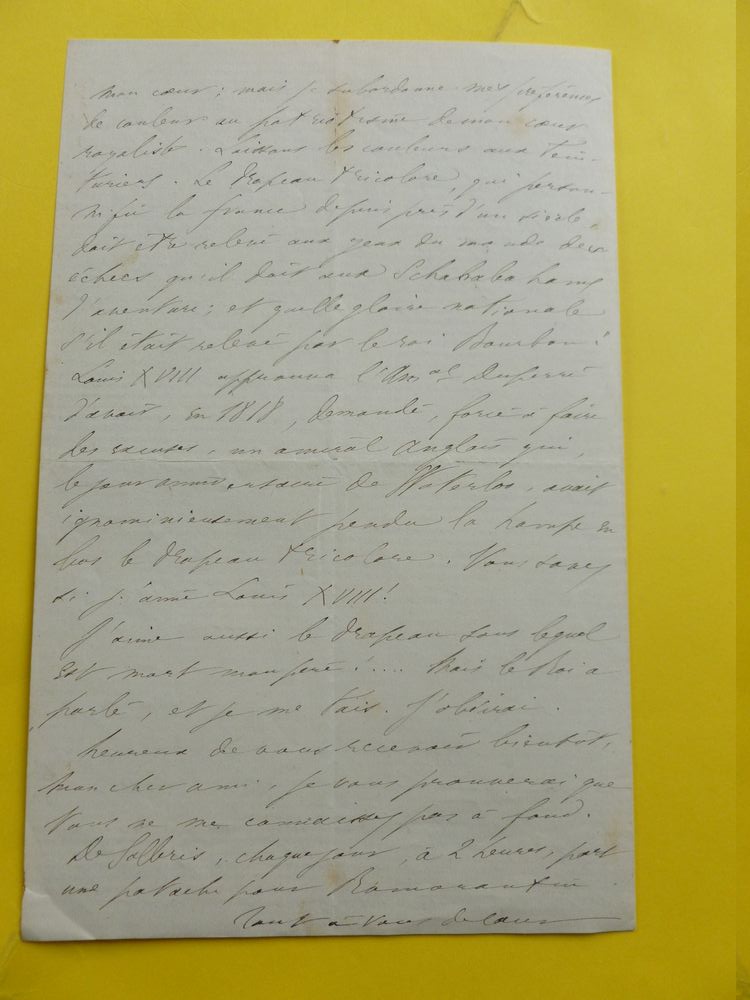 mon cœur ; mais je subordonne mes préférences
de couleur au patriotisme de mon cœur
royaliste. Laissons les couleurs aux tein-
turiers. Le Drapeau tricolore, qui person-
nifie la france depuis près d'un siècle,
doit être relevé aux yeux du monde des
échecs qu'il doit aux Schahabaham
d'aventure ; et quelle gloire nationale
s'il était relevé par le roi Bourbon !
Louis XVIII approuva l'Am.al Duperré
d'avoir, en 1818, demandé, forcé à faire
des excuses, un amiral anglais qui,
le jour anniversaire de Waterloo, avait
ignominieusement pendu la hampe en
bas le drapeau tricolore. Vous savez
si j'aime Louis XVIII !
J'aime aussi le drapeau sous lequel
est mort mon père !.... Mais le Roi a
parlé, et je me tais. J'obéirai.
heureux de vous recevoir bientôt,
mon cher ami, je vous prouverai que
vous ne me connaissez pas à fond.
De Salbris, chaque jour, à 2 heures, part
une patache pour Romorantin
Tout à vous de cœur